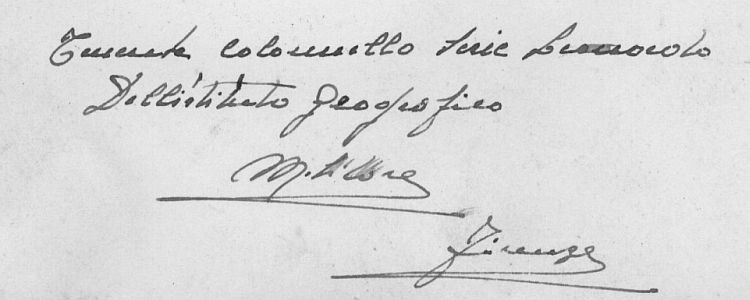 Tenente Colonnello Siric Leonardo
Dell'istituto Geografico
Militare
Firenze